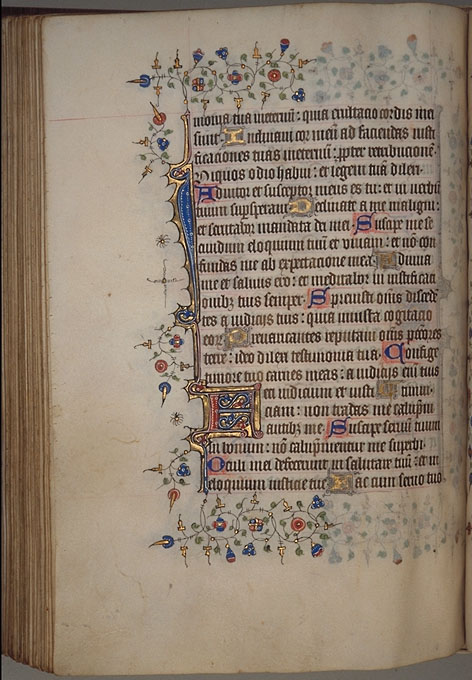 monia tua ineternū: quia exultacio cordis mei
sunt. Inclinaui cor meū ad faciendas iusti
ficaciones tuas ineternū: ꝓpter retribucionē.
Iniquos odio habui: et legem tuā dilexi.
Adiutor et susceptor meus es tu: et in uerbū
tuum suꝑsperaui. Declinate a me maligni:
et scrutabor mandata dei mei. Suscipe me se
cundum eloquium tuū et uiuam: et nō con
fundas me ab expectacione mea. Adiuua
me et saluus ero: et meditabor in iustificaci
onibꝫ tuis semper. Spreuisti om̄s disceden
tes a iudicijs tuis: quia iniusta cogitacio
eoꝝ. Preuaricantes reputaui om̄s pctōres
terre: ideo dilexi testimonia tua. Confige
timore tuo carnes meas: a iudicijs enī tuis
Feci iudicium et iusti timui.
ciam: non tradas me calūpni
antibꝫ me. Suscipe seruū tuum
in bonum: nō calūpnientur me superbi.
Oculi mei defecerunt in salutare tuū: et in
eloquium iusticie tue. Fac cum seruo tuo